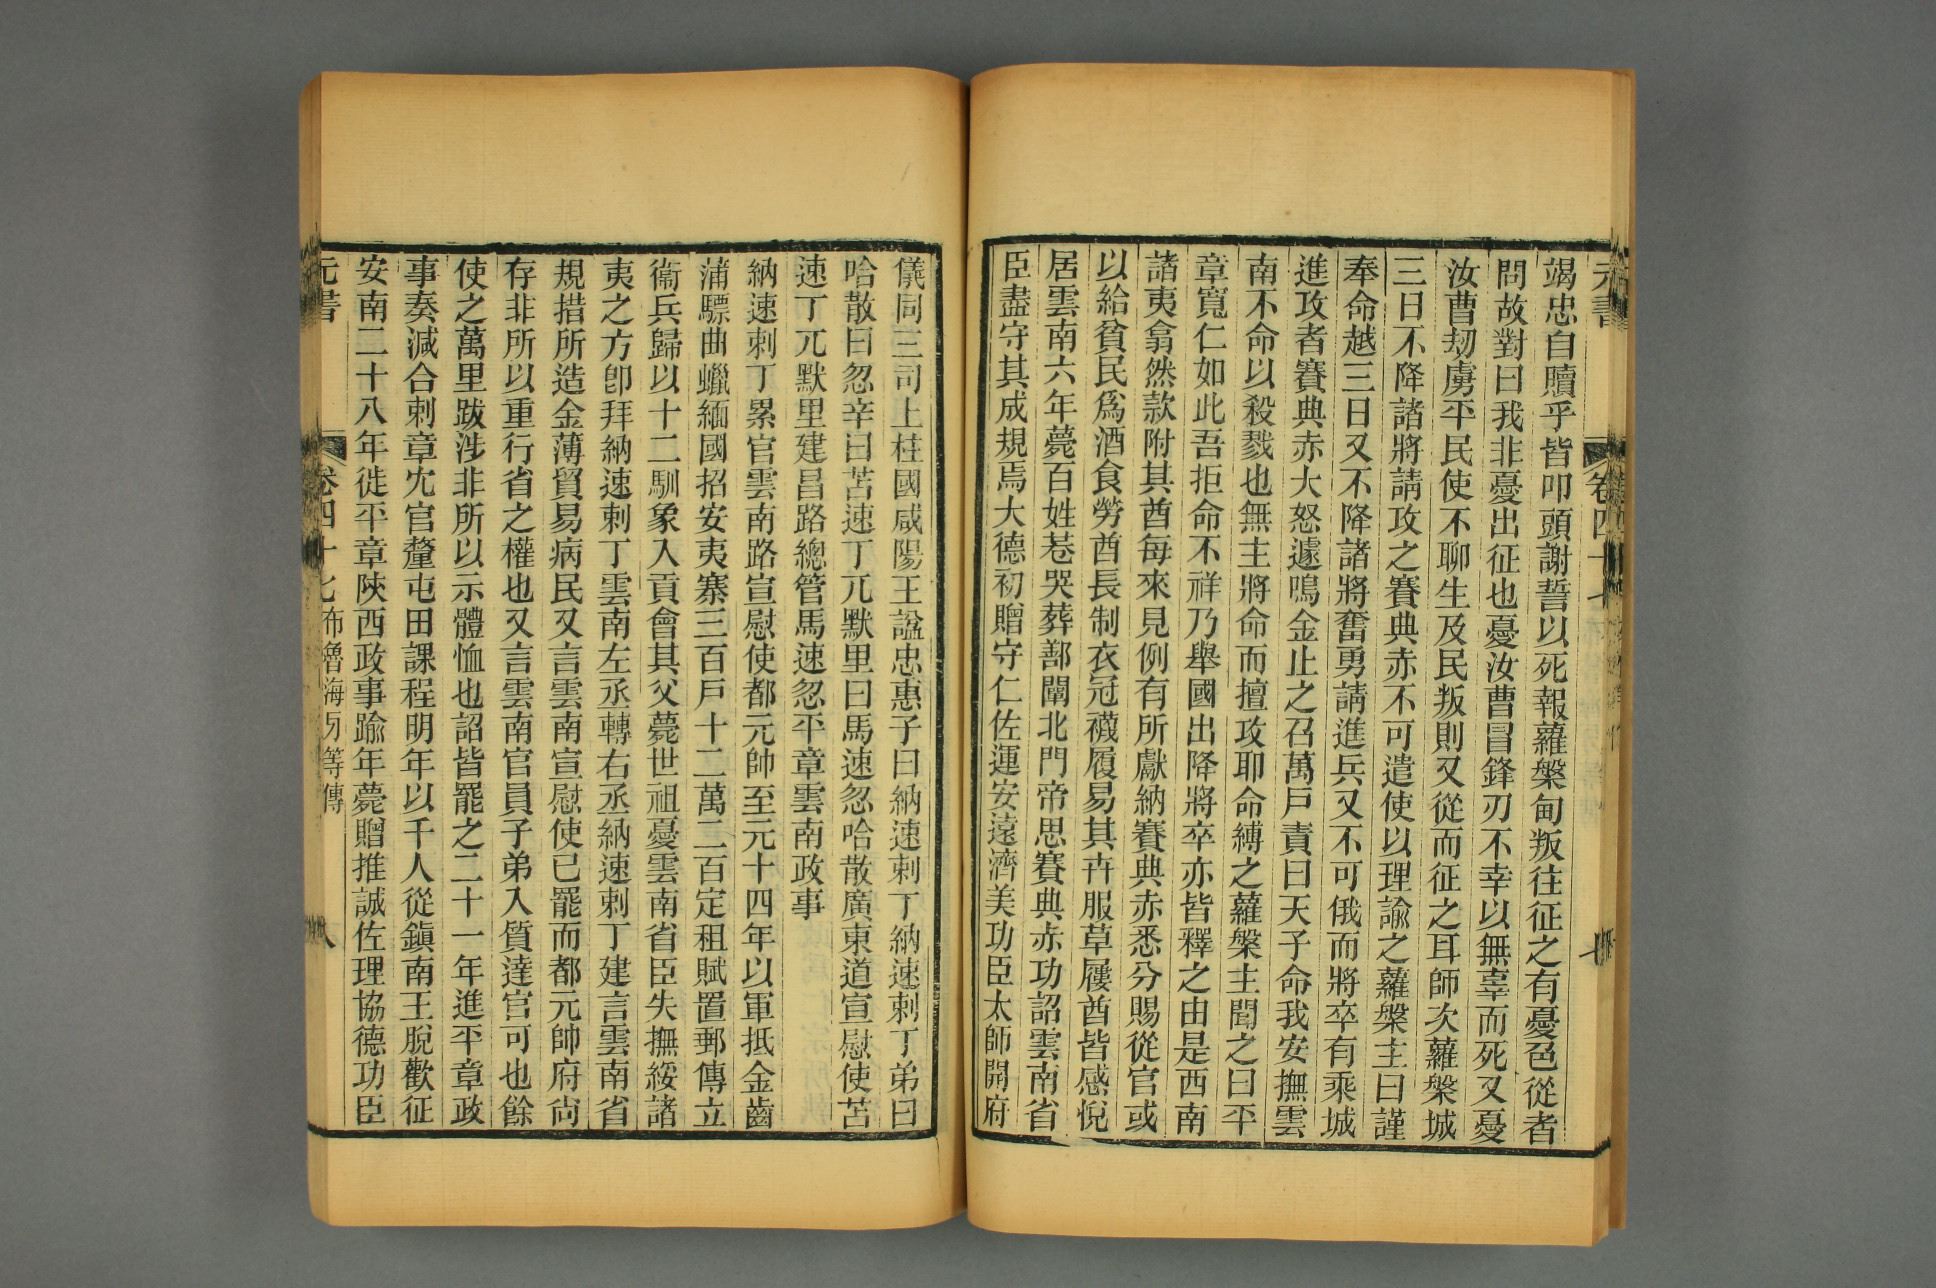 元書
卷四十七
七
竭忠自贖乎皆叩頭謝誓以死報蘿槃甸叛往征之有憂色從者
問故對曰我非憂出征也憂汝曹冒鋒刃不幸以無辜而死又憂
汝曹刼虜平民使不聊生及民叛則又從而征之耳師次蘿槃城
三日不降諸將請攻之賽典赤不可遣使以理諭之蘿槃主曰謹
奉命越三日又不降諸將奮勇請進兵又不可俄而將卒有乘城
進攻者賽典赤大怒遽鳴金止之召萬戶責曰天子命我安撫雲
南不命以殺戮也無主將命而擅攻耶命縛之蘿槃主聞之曰平
章寬仁如此吾拒命不祥乃舉國出降將卒亦皆釋之由是西南
諸夷翕然款附其酋每來見例有所獻納賽典赤悉分賜從官或
以給貧民爲酒食勞酋長制衣冠襪履易其卉服草屨酋皆感悅
居雲南六年薨百姓巷哭葬鄯闡北門帝思賽典赤功詔雲南省
臣盡守其成規焉大德初贈守仁佐運安遠濟美功臣太師開府
儀同三司上柱國咸陽王諡忠惠子曰納速剌丁納速剌丁弟曰
哈散曰忽辛曰苫速丁兀默里曰馬速忽哈散廣東道宣慰使苫
速丁兀默里建昌路總管馬速忽平章雲南政事
納速剌丁累官雲南路宣慰使都元帥至元十四年以軍抵金齒
蒲驃曲蠟緬國招安夷寨三百戶十二萬二百定租賦置郵傳立
衞兵歸以十二馴象入貢會其父薨世祖憂雲南省臣失撫綏諸
夷之方卽拜納速剌丁雲南左丞轉右丞納速剌丁建言雲南省
規措所造金薄貿易病民又言雲南宣慰使已罷而都元帥府尙
存非所以重行省之權也又言雲南官員子弟入質達官可也餘
使之萬里跋涉非所以示體恤也詔皆罷之二十一年進平章政
事奏減合剌章冗官釐屯田課程明年以千人從鎭南王脫歡征
安南二十八年徙平章陜西政事踰年薨贈推誠佐理協德功臣
元書
卷四十七
布魯海牙等傳
八